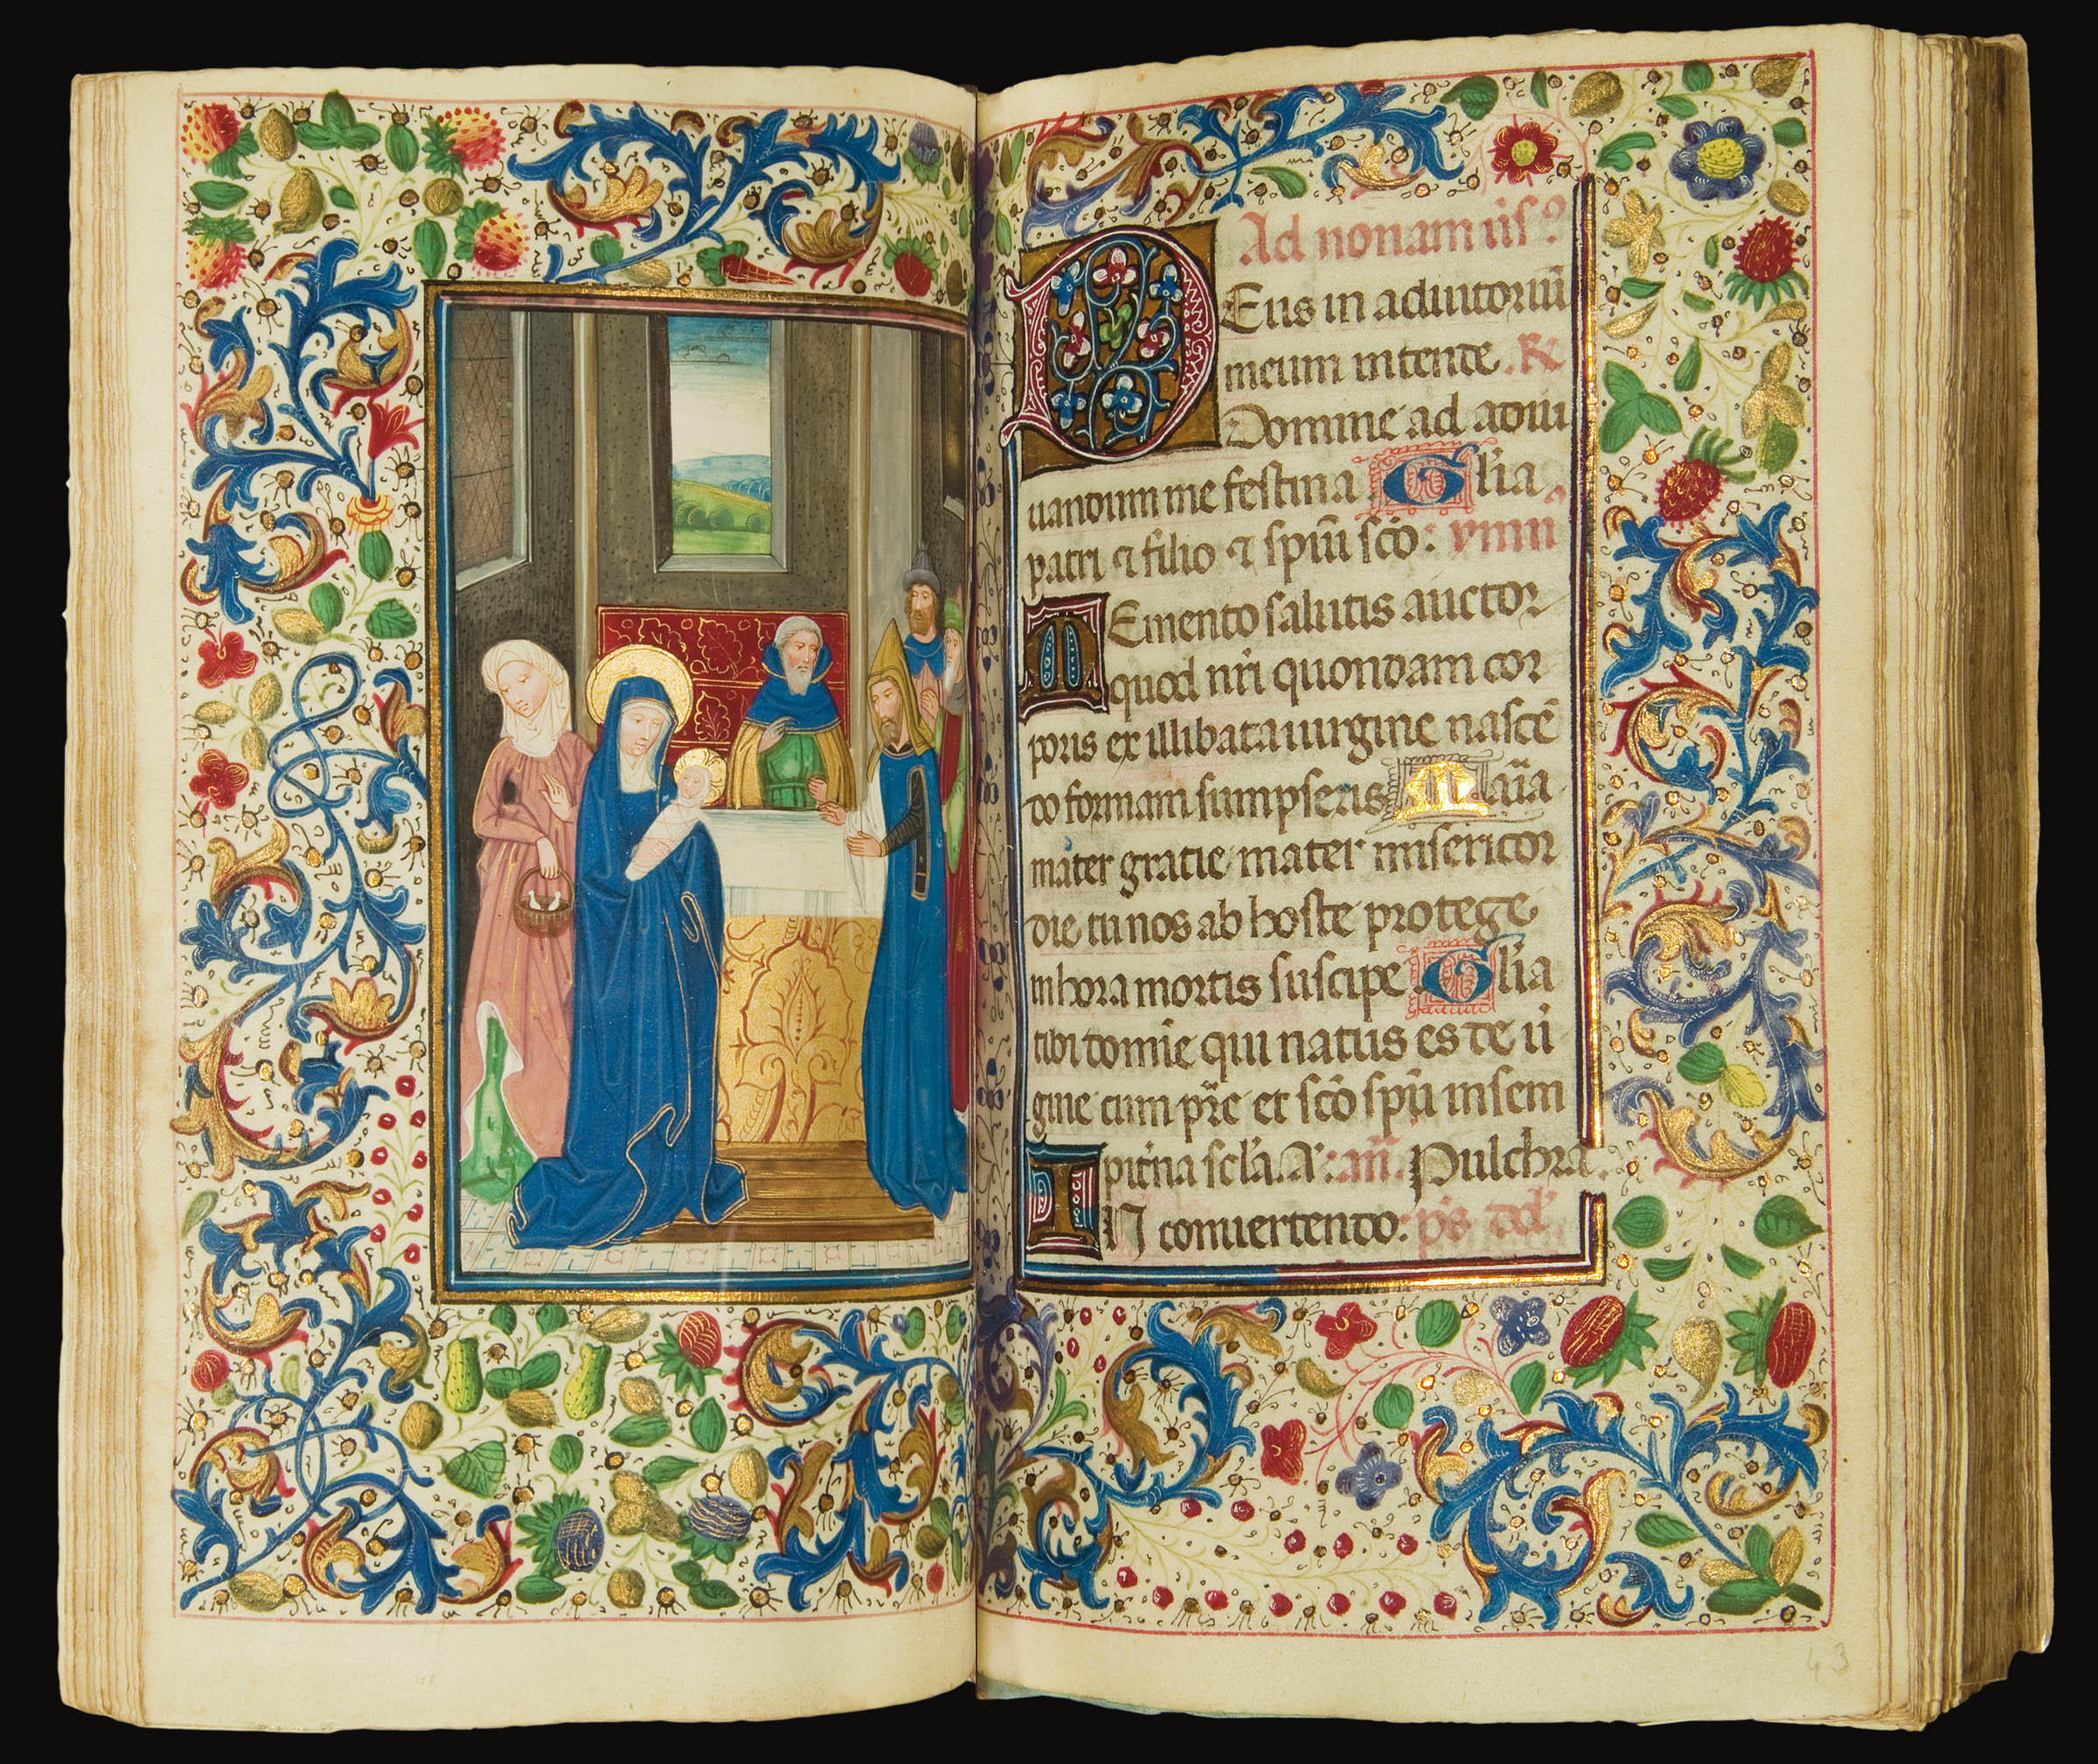 Ad nonam ūs⁹
DEus in adiutoriū
meum intende. R
Domine ad adiu
uandum me festina Gl̄ia
patri ⁊ filio ⁊ sp̄ui sc̄o: ymnu᷒
MEmento salutis auctor
quod nr̄i quondam cor
poris ex illibata uirgine nascē
do formam sumpseris Maria
mater gratie mater misericor
die tu nos ab hoste protege
in hora mortis suscipe Gl̄ia
tibi dom̄ie qui natus es de ui
gine cum pr̄e et sc̄o sp̄u in sem
pit̄na sc̄la. A. an̄. Pulchra.
IN conuertendo: p̄s dd̄.
43